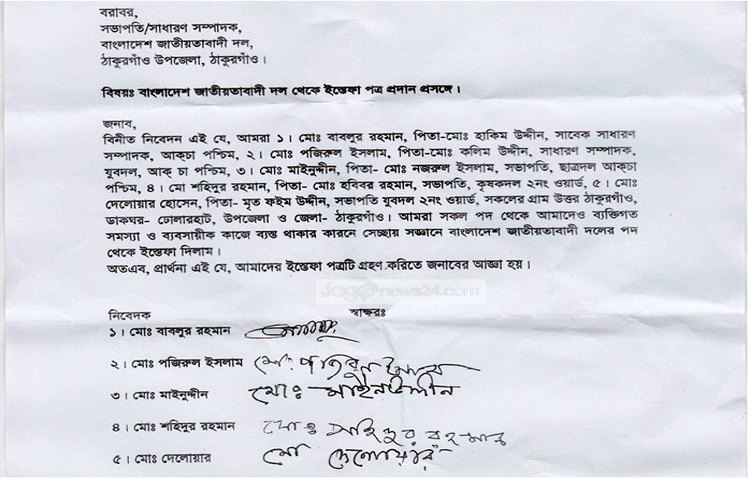 বরাবর,
সভাপতি/সাধারণ সম্পাদক,
বাংলাদেশ জাতীয়তাবাদী দল,
ঠাকুরগাঁও উপজেলা, ঠাকুরগাঁও।
বিষয়ঃ বাংলাদেশ জাতীয়তাবাদী দল থেকে ইস্তেফা পত্র প্রদান প্রসঙ্গে।
জনাব,
বিনীত নিবেদন এই যে, আমরা ১। মোঃ বাবলুর রহমান, পিতা-মোঃ হাকিম উদ্দীন, সাবেক সাধারণ
সম্পাদক, আক্চা পশ্চিম, ২। মোঃ পজিরুল ইসলাম, পিতা-মোঃ কলিম উদ্দীন, সাধারণ সম্পাদক,
যুবদল, আক্ চা পশ্চিম, ৩। মোঃ মাইনুদ্দীন, পিতা- মোঃ নজরুল ইসলাম, সভাপতি, ছাত্রদল আক্চা
পশ্চিম, ৪। মো শহিদুর রহমান, পিতা- মোঃ হবিবর রহমান, সভাপতি, কৃষকদল ২নং ওয়ার্ড, ৫। মোঃ
দেলোয়ার হোসেন, পিতা- মৃত ফইম উদ্দীন, সভাপতি যুবদল ২নং ওয়ার্ড, সকলের গ্রাম উত্তর ঠাকুরগাঁও,
ডাকঘর- ঢোলারহাট, উপজেলা ও জেলা- ঠাকুরগাঁও। আমরা সকল পদ থেকে আমাদেও ব্যক্তিগত
সমস্যা ও ব্যবসায়ীক কাজে ব্যস্ত থাকার কারনে সেচ্ছায় সজ্ঞানে বাংলাদেশ জাতীয়তাবাদী দলের পদ
থেকে ইস্তেফা দিলাম।
অতএব, প্রার্থনা এই যে, আমাদের ইস্তেফা পত্রটি গ্রহণ করিতে জনাবের আজ্ঞা হয়।
Jagonews24.com
নিবেদক স্বাক্ষরঃ
১। মোঃ বাবলুর রহমান
২। মোঃ পজিরুল ইসলাম মোঃ পজিরুল ইসলাম
৩। মোঃ মাইনুদ্দীন মোঃ মাইনউদ্দীন
৪। মোঃ শহিদুর রহমান মোঃ সহিদুর রহমান
৫। মোঃ দেলোয়ার মো দেলোয়ার